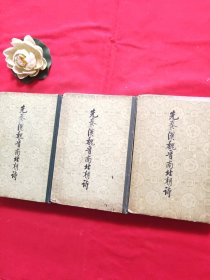 先秦漢魏晉南北朝詩
先秦漢魏晉南北朝詩
先秦漢魏晉南北朝詩